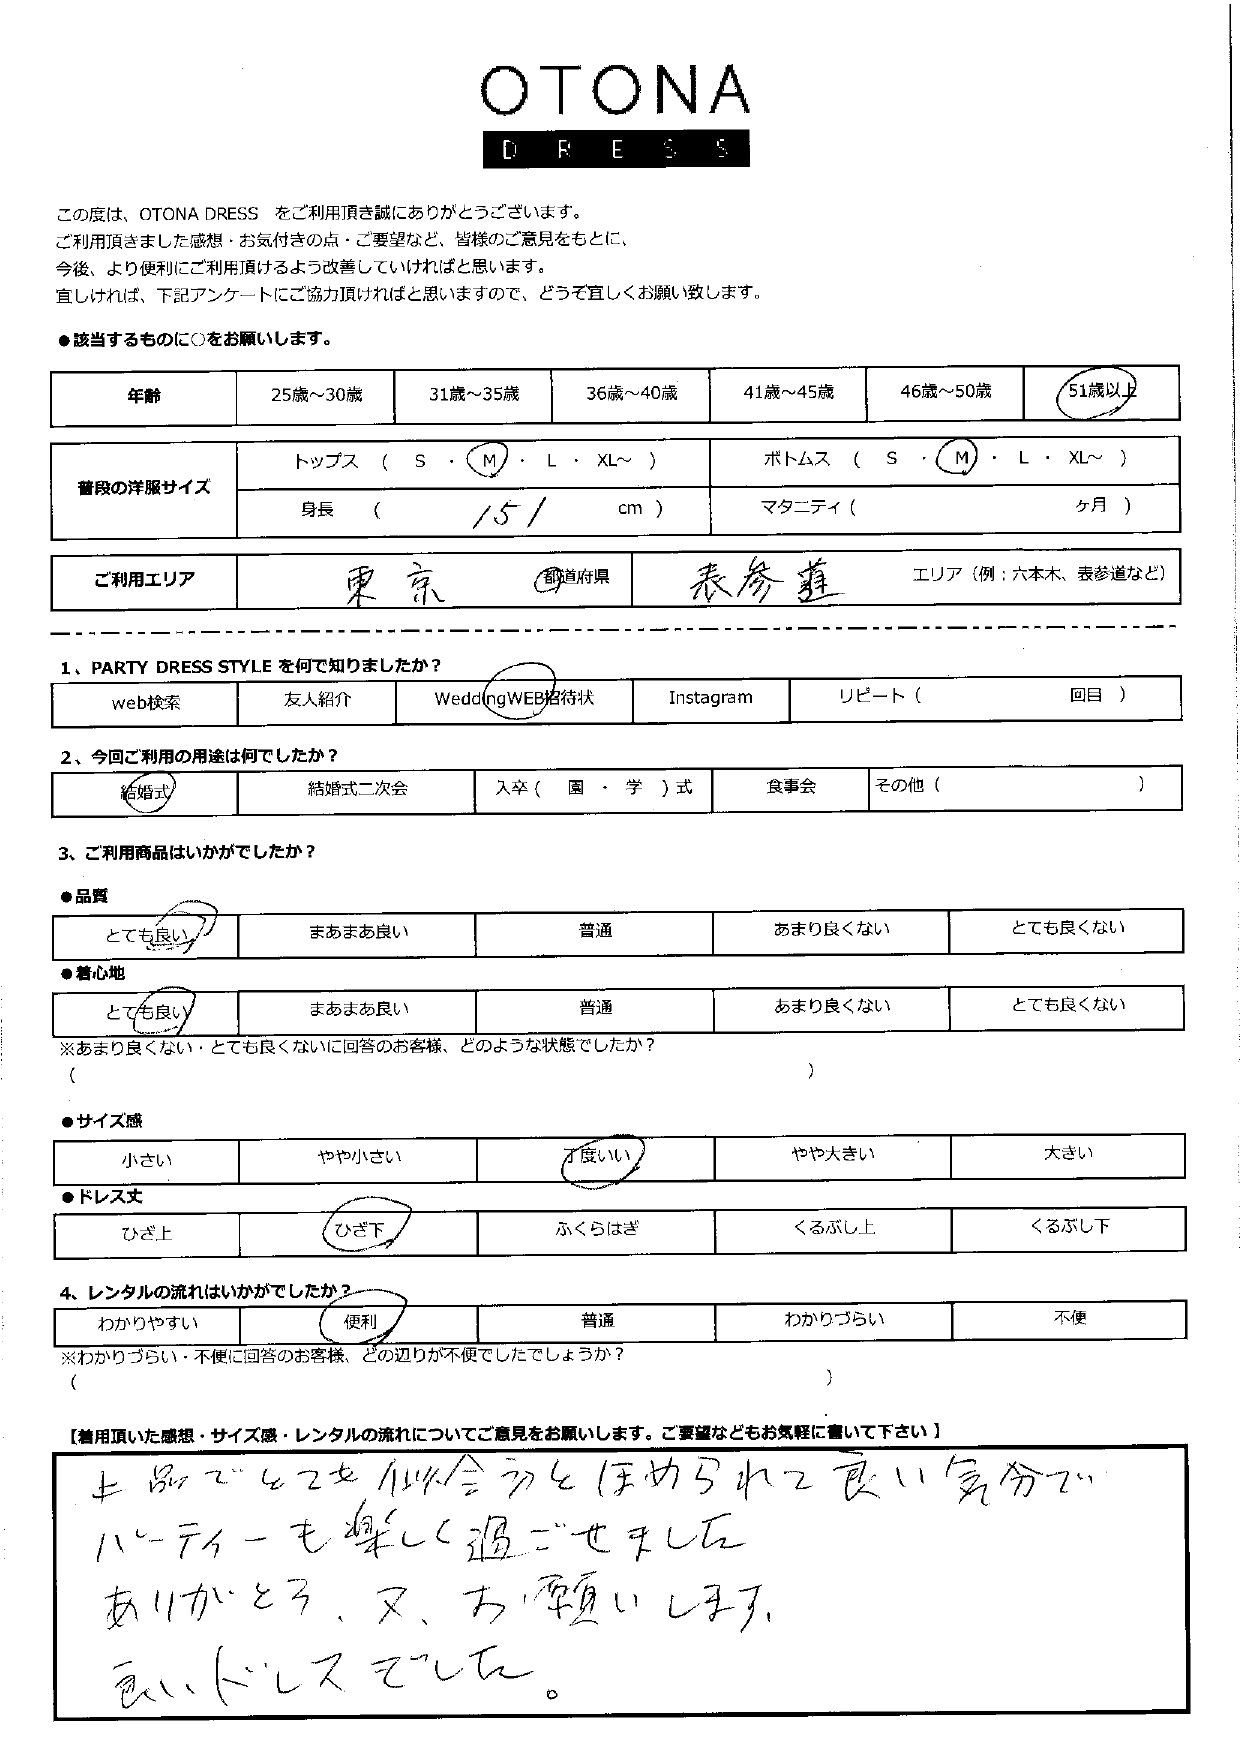 OTONA
DRESS
この度は、OTONA DRESS をご利用頂き誠にありがとうございます。
ご利用頂きました感想・お気付きの点・ご要望など、皆様のご意見をもとに、
今後、より便利にご利用頂けるよう改善していければと思います。
宜しければ、下記アンケートにご協力頂ければと思いますので、どうぞ宜しくお願い致します。
●該当するものに○をお願いします。
年齢 25歳～30歳 31歳～35歳 36歳～40歳 41歳～45歳 46歳～50歳 51歳以上
普段の洋服サイズ トップス ( S ・ M ・ L ・ XL～ ) ボトムス ( S ・ M ・ L ・ XL～ )
身長 ( 151 cm ) マタニティ ( ヶ月 )
ご利用エリア 東京 都道府県 表参道 エリア（例：六本木、表参道など）
1、PARTY DRESS STYLE を何で知りましたか？
web検索 友人紹介 WeddingWEB招待状 Instagram リピート ( 回目 )
2、今回ご利用の用途は何でしたか？
結婚式 結婚式二次会 入卒 ( 園 ・ 学 ) 式 食事会 その他 ( )
3、ご利用商品はいかがでしたか？
●品質
とても良い まあまあ良い 普通 あまり良くない とても良くない
●着心地
とても良い まあまあ良い 普通 あまり良くない とても良くない
※あまり良くない・とても良くないに回答のお客様、どのような状態でしたか？
( )
●サイズ感
小さい やや小さい 丁度いい やや大きい 大きい
●ドレス丈
ひざ上 ひざ下 ふくらはぎ くるぶし上 くるぶし下
4、レンタルの流れはいかがでしたか？
わかりやすい 便利 普通 わかりづらい 不便
※わかりづらい・不便に回答のお客様、どの辺りが不便でしたでしょうか？
( )
【着用頂いた感想・サイズ感・レンタルの流れについてご意見をお願いします。ご要望などもお気軽に書いて下さい】
上品でとても似合うとほめられて良い気分で
パーティーも楽しく過ごせました
ありがとう、又、お願いします。
良いドレスでした。